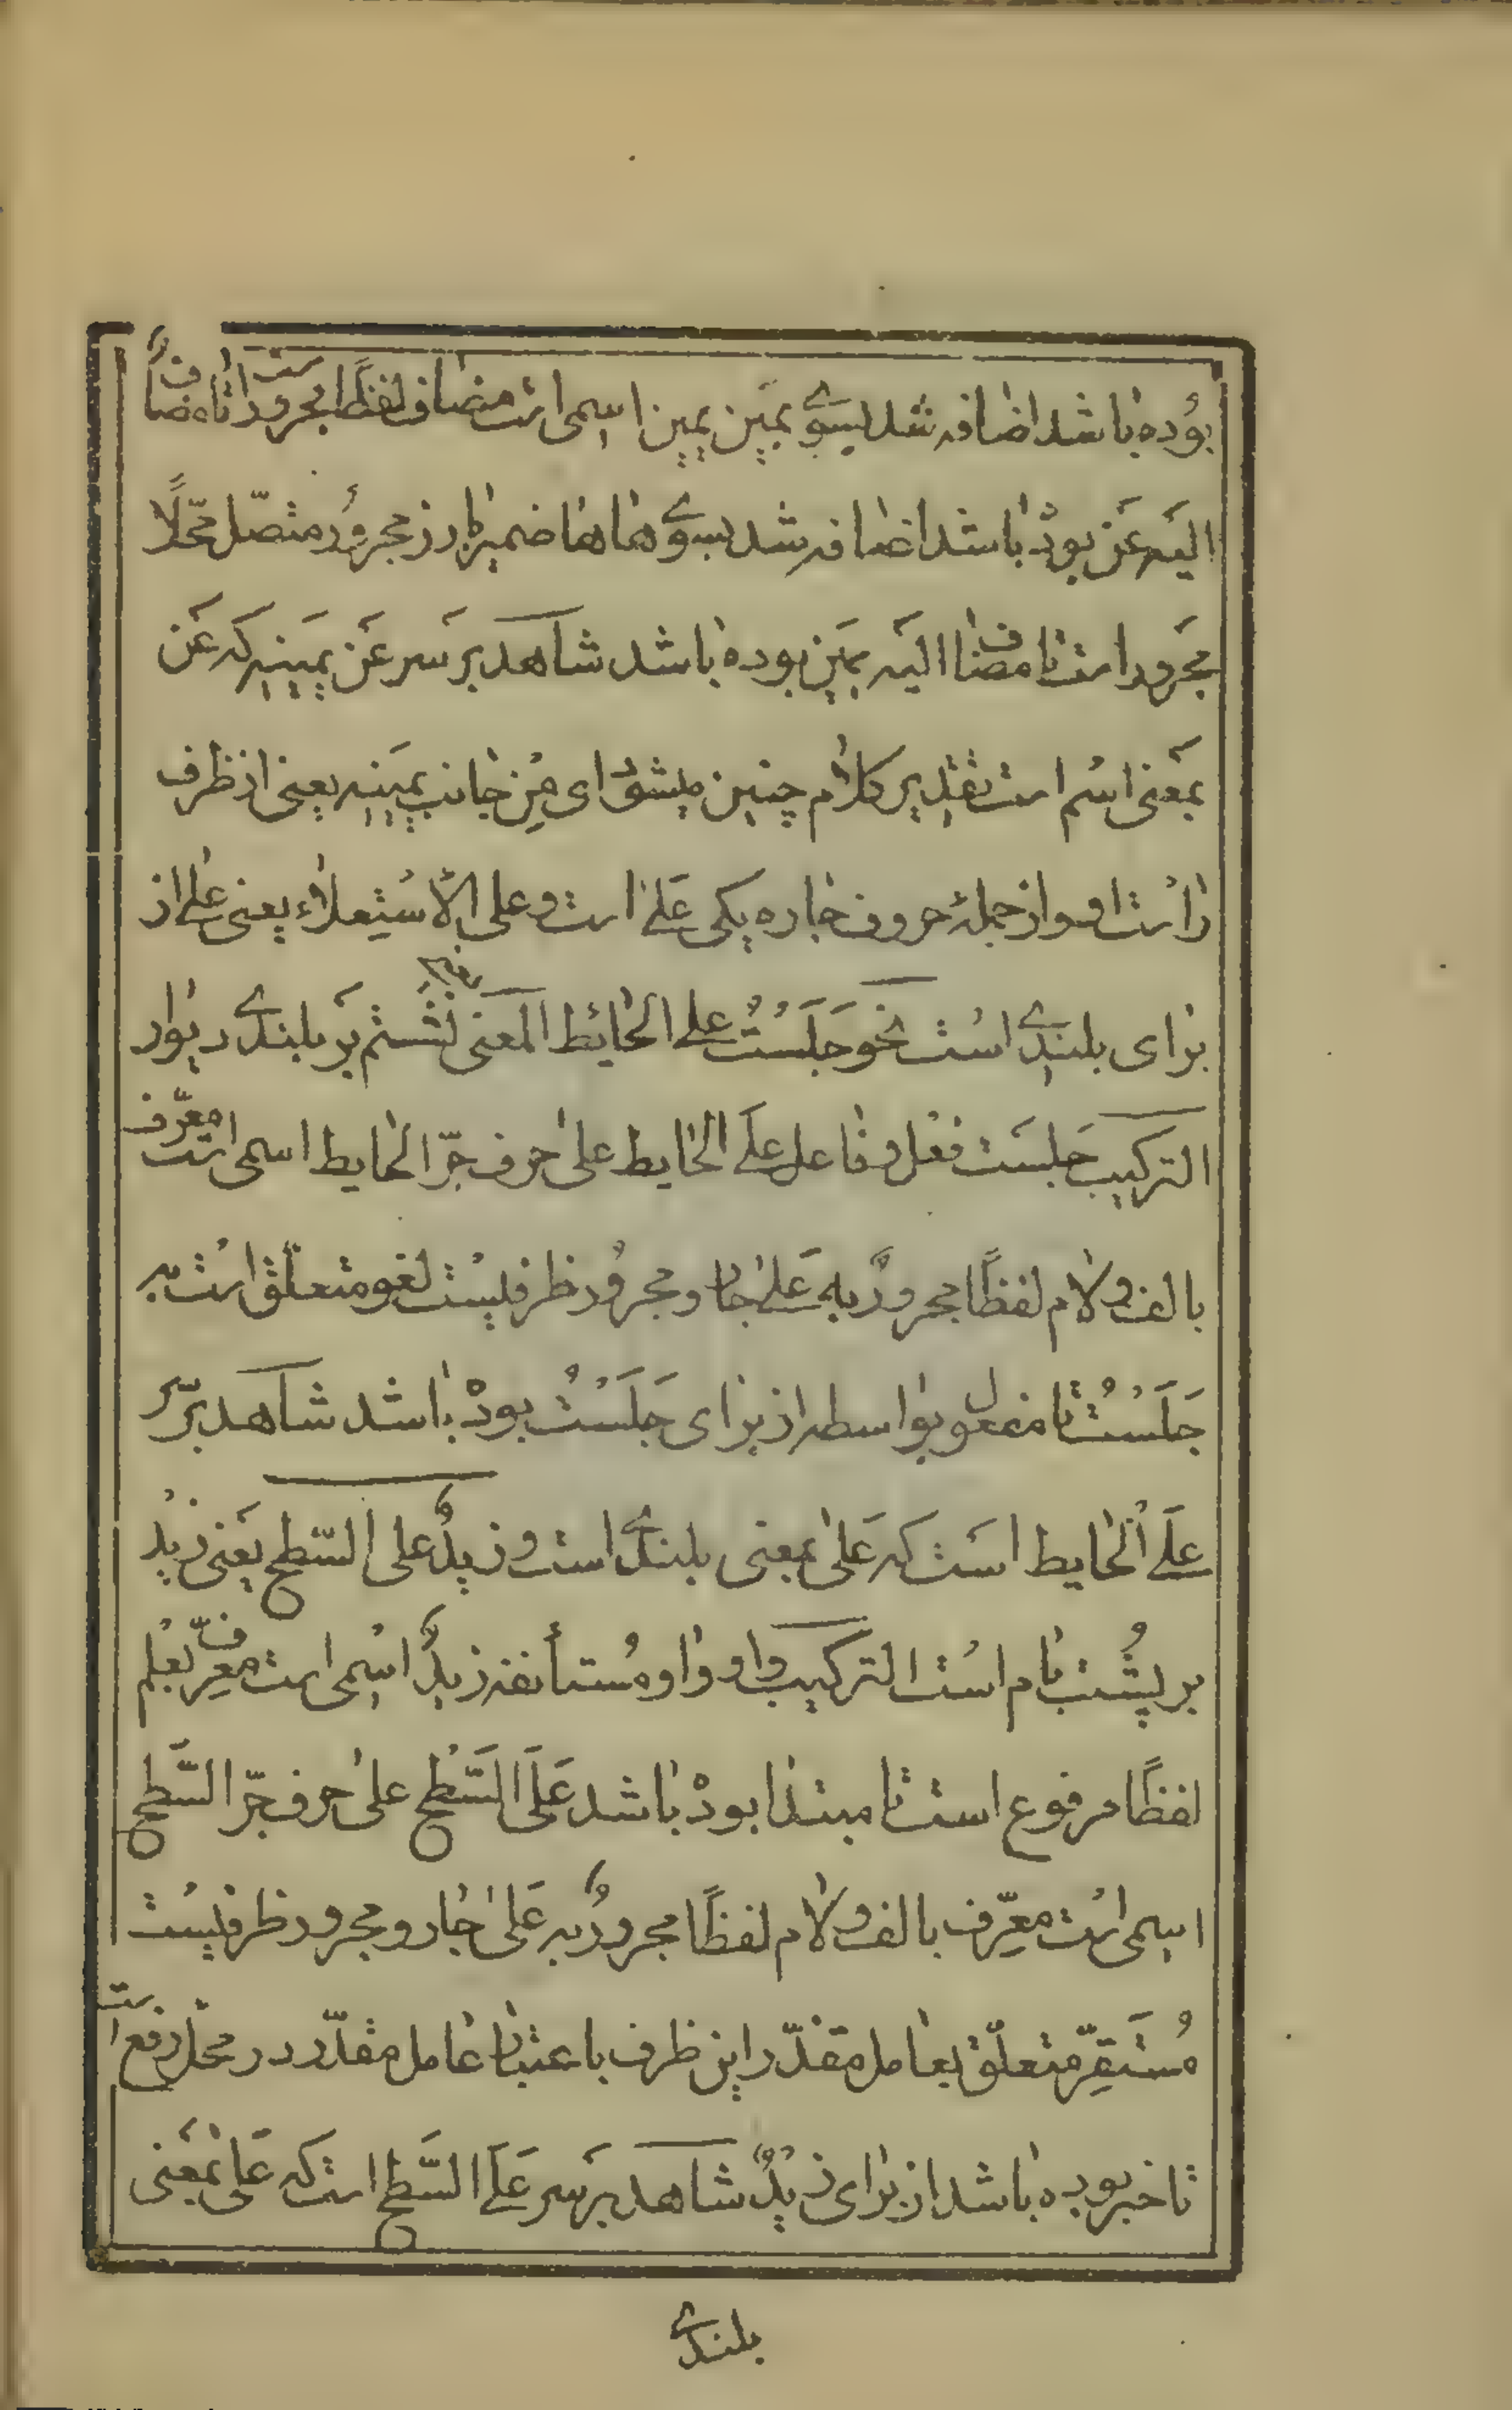 بوُده باشد اضافه شد بسوی یَمین یمین اسمی است مضاف لفظًا مجرور است تا مضافٌ
الیَه عَن بودْ باشد اضافه شد بسوی ها ها ضمیر بارز مجروُر متصّل محّلًا
مجَرور است تا مضاف الیَه یمَین بوده باشد شاهد برَ سر عَن یمَینِه که عَن
بمَعنی اسْم است تقدیر کلام چنین میشوْد ای مِن جانب یمَینه یعنی از ظرف
راست او و از جملهٔ حروف جاره یکی عَلیٰ است و علی الاسْتِعلاء یعنی علی از
برای بلندی است نحَو جَلَسْتُ علی الحائط المَعنی یعنی نشستم برَ بلندی دیوار
الترکیب جَلسَت فعْل و فاعل علَی الحایط علیٰ حرف جرّ الحایط اسمی است معرّف
بالف و لام لفظًا مجرورٌ به عَلیٰ جار و مجروُر ظرفیسْت لغو متعلّق است به
جَلَسْتُ تا مفعول بواسطه از برای جَلَسْتُ بودْ باشد شاهد برَسر
علَی الحایط است که عَلیٰ بمعنی بلندی است و زیدٌ علی السّطح یعَنی زیْد
بر پشُت بام اسْت الترکیب واو واو مُستأنفه زیدٌ اسْمی است معرّف بعَلم
لفظًا مرفوع است تا مبتدا بودْ باشد عَلَی السَّطْح علیٰ حرف جرّ السَّطح
اسمی است معرّف بالف و لام لفظًا مجرورٌ به عَلیٰ جار و مجرور ظرفیسْت
مُستَقِرّ متعلّق بعامل مقدّر این ظرف باعتبار عامل مقدّر در محَل رفع است
تا خبر بوده باشد از برای زیْدٌ شاهد برَسر عَلَی السَّطح است که عَلیٰ بمعَنی
بلندی